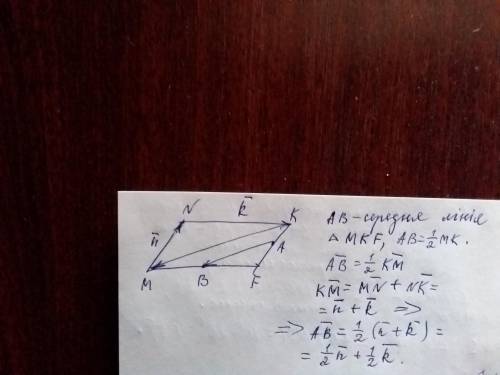 N k̄ K
n̄ A
M B F
AB-середня лінія
△ MKF, AB=½MK.
A̅B̅=½K̅M̅
K̅M̅=M̅N̅+N̅K̅=
=n̄+k̄ =>
=> A̅B̅=½(n̄+k̄)=
=½n̄+½k̄.